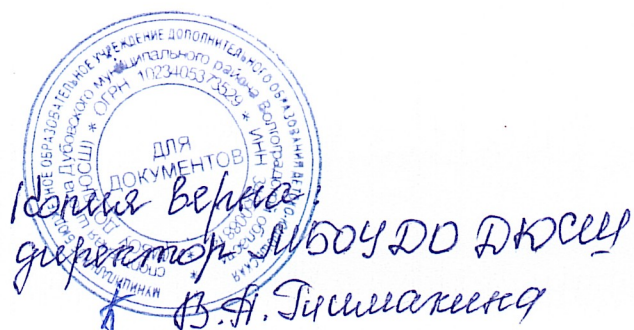 МУНИЦИПАЛЬНОЕ ОБРАЗОВАТЕЛЬНОЕ УЧРЕЖДЕНИЕ ДОПОЛНИТЕЛЬНОГО ОБРАЗОВАНИЯ ДЕТЕЙ
Дубовского муниципального района Волгоградской области
ОГРН 1023405373529 * ИНН
ДЛЯ
ДОКУМЕНТОВ
Копия верна:
директор МБОУ ДО ДЮСШ